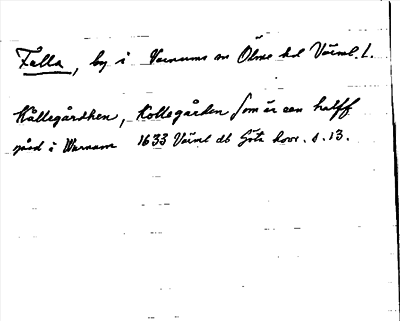 Fålla, by i Varnums sn Ölme hd Värml. l.
Kållegårdhen, Kollegården som är een halff
gård i Warnum 1633 Värml db Göta hovr. s. 13.